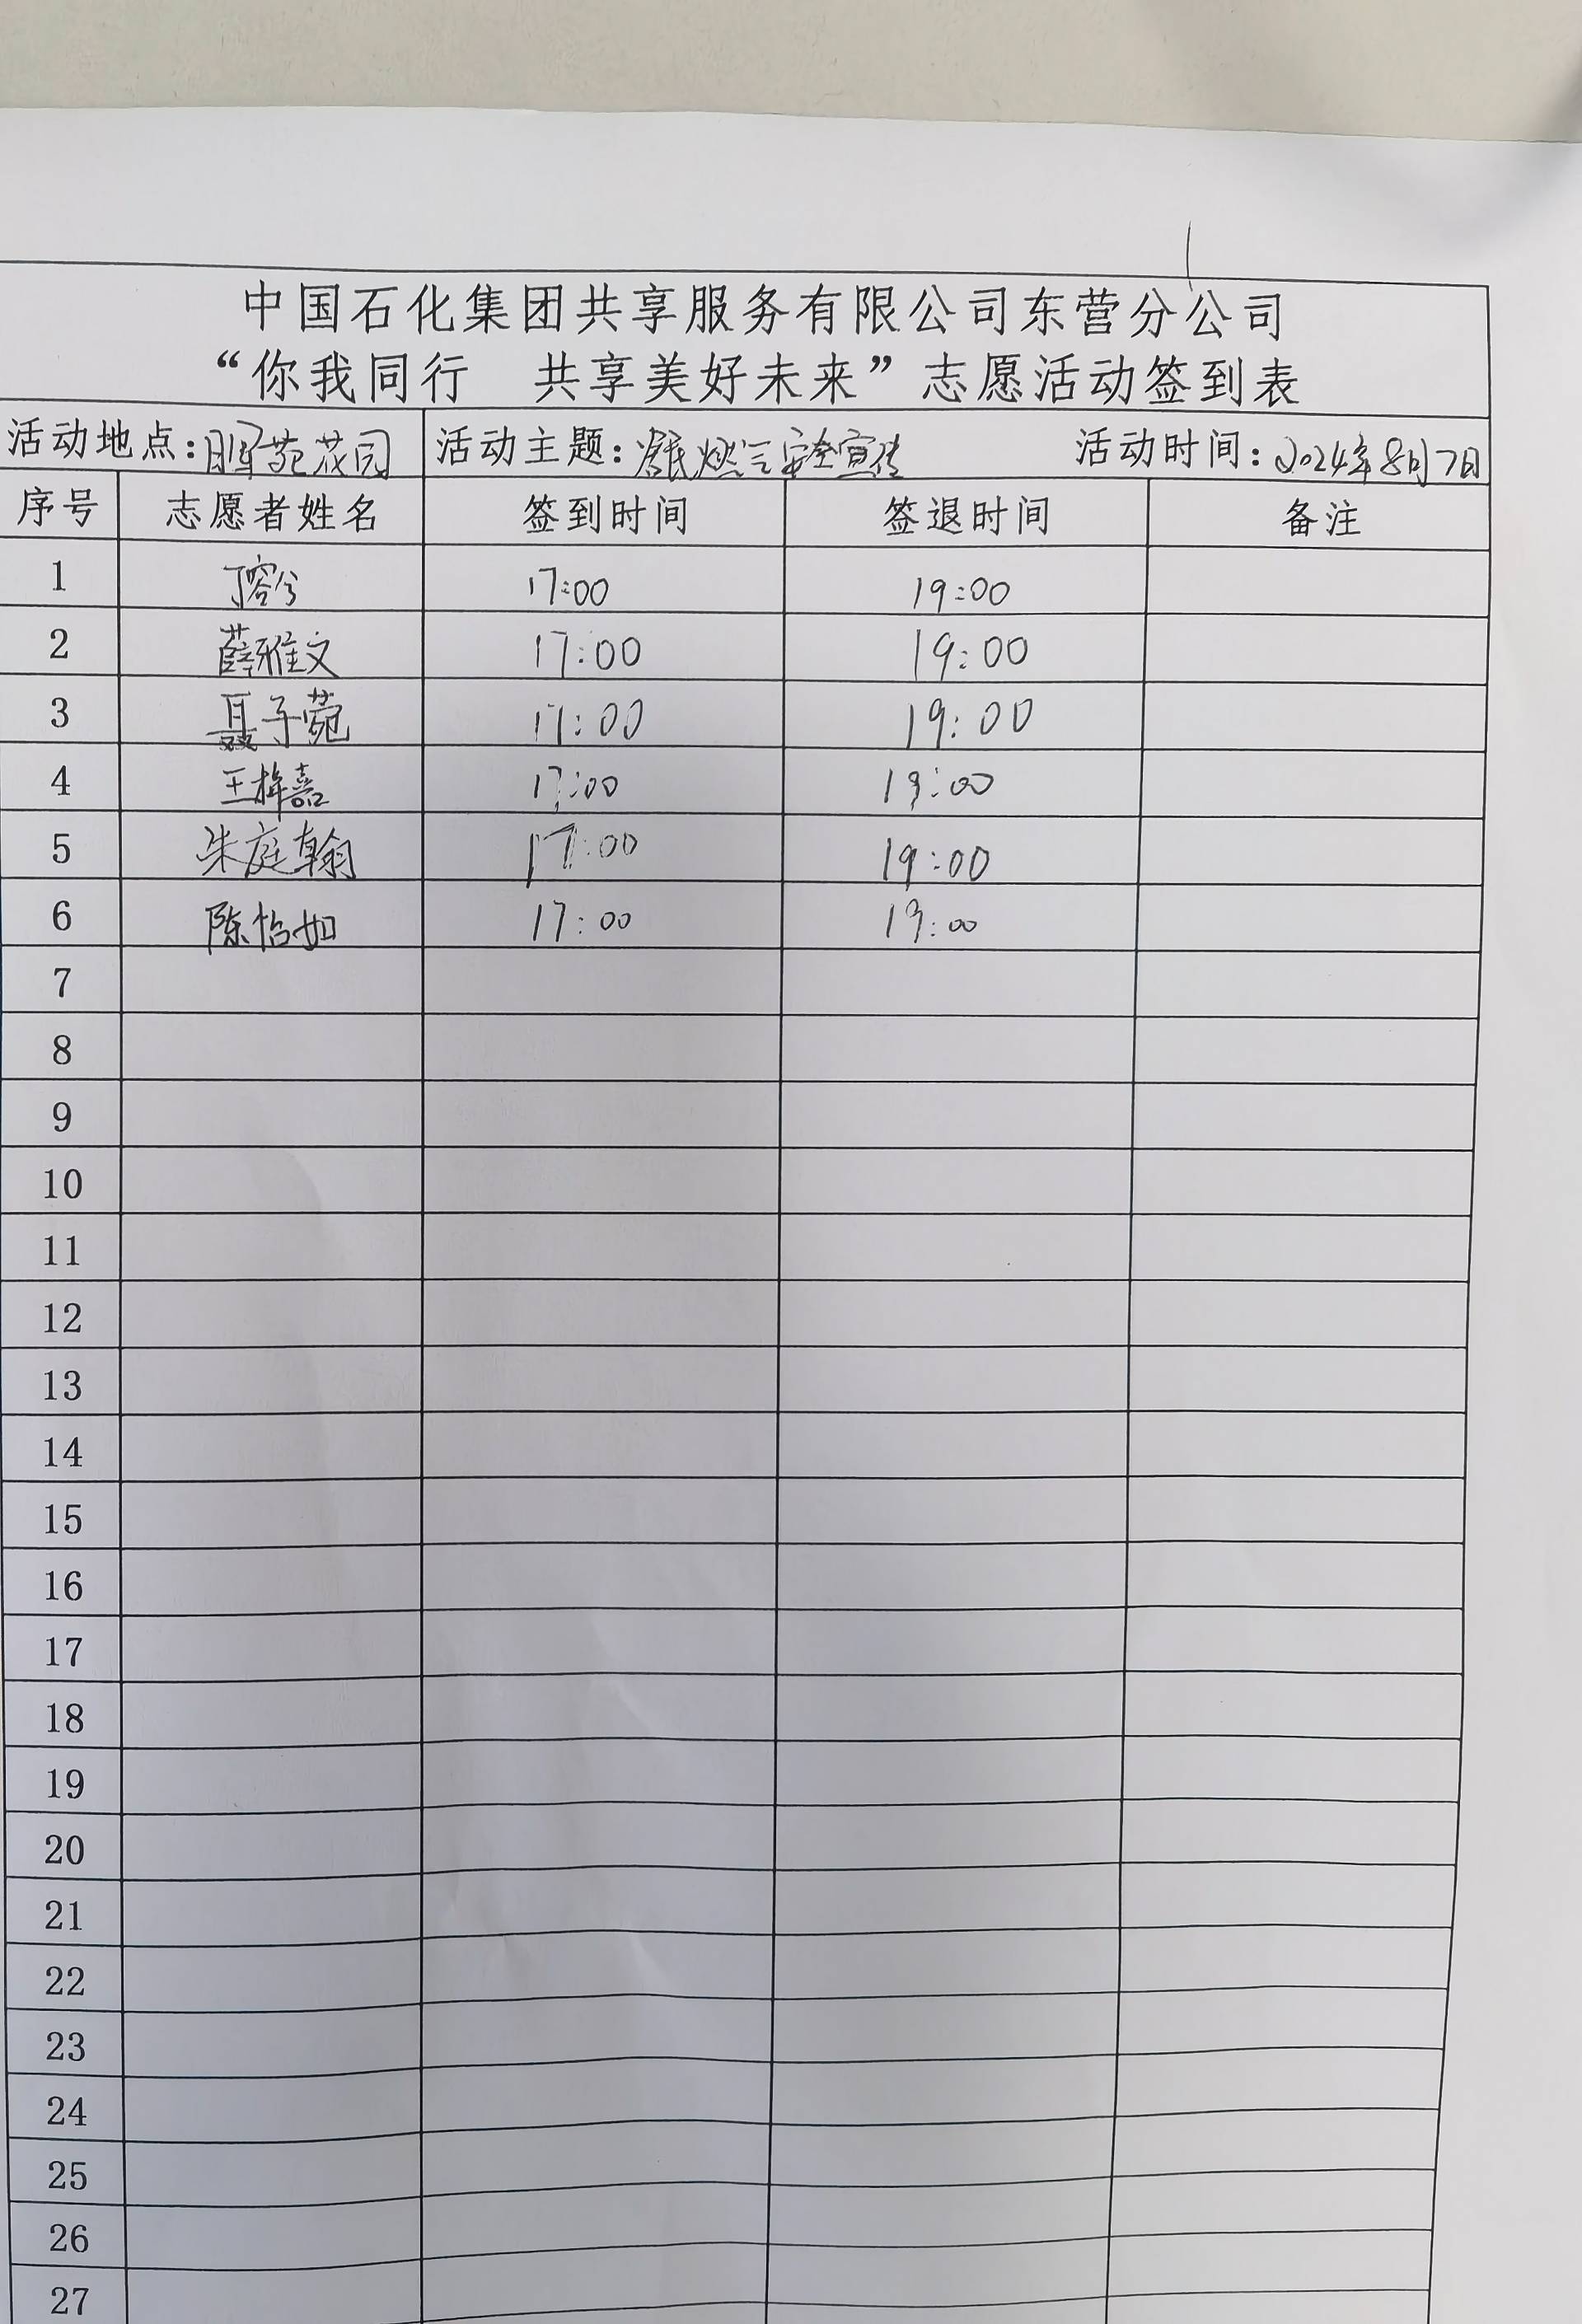 中国石化集团共享服务有限公司东营分公司
“你我同行 共享美好未来”志愿活动签到表
活动地点:胜苑花园 活动主题:居民燃气安全宣传 活动时间:2024年8月7日
序号 志愿者姓名 签到时间 签退时间 备注
1 丁容兮 17:00 19:00
2 薛雅文 17:00 19:00
3 聂子菀 17:00 19:00
4 王梓嘉 17:00 19:00
5 朱庭翰 17:00 19:00
6 陈怡如 17:00 19:00
7
8
9
10
11
12
13
14
15
16
17
18
19
20
21
22
23
24
25
26
27